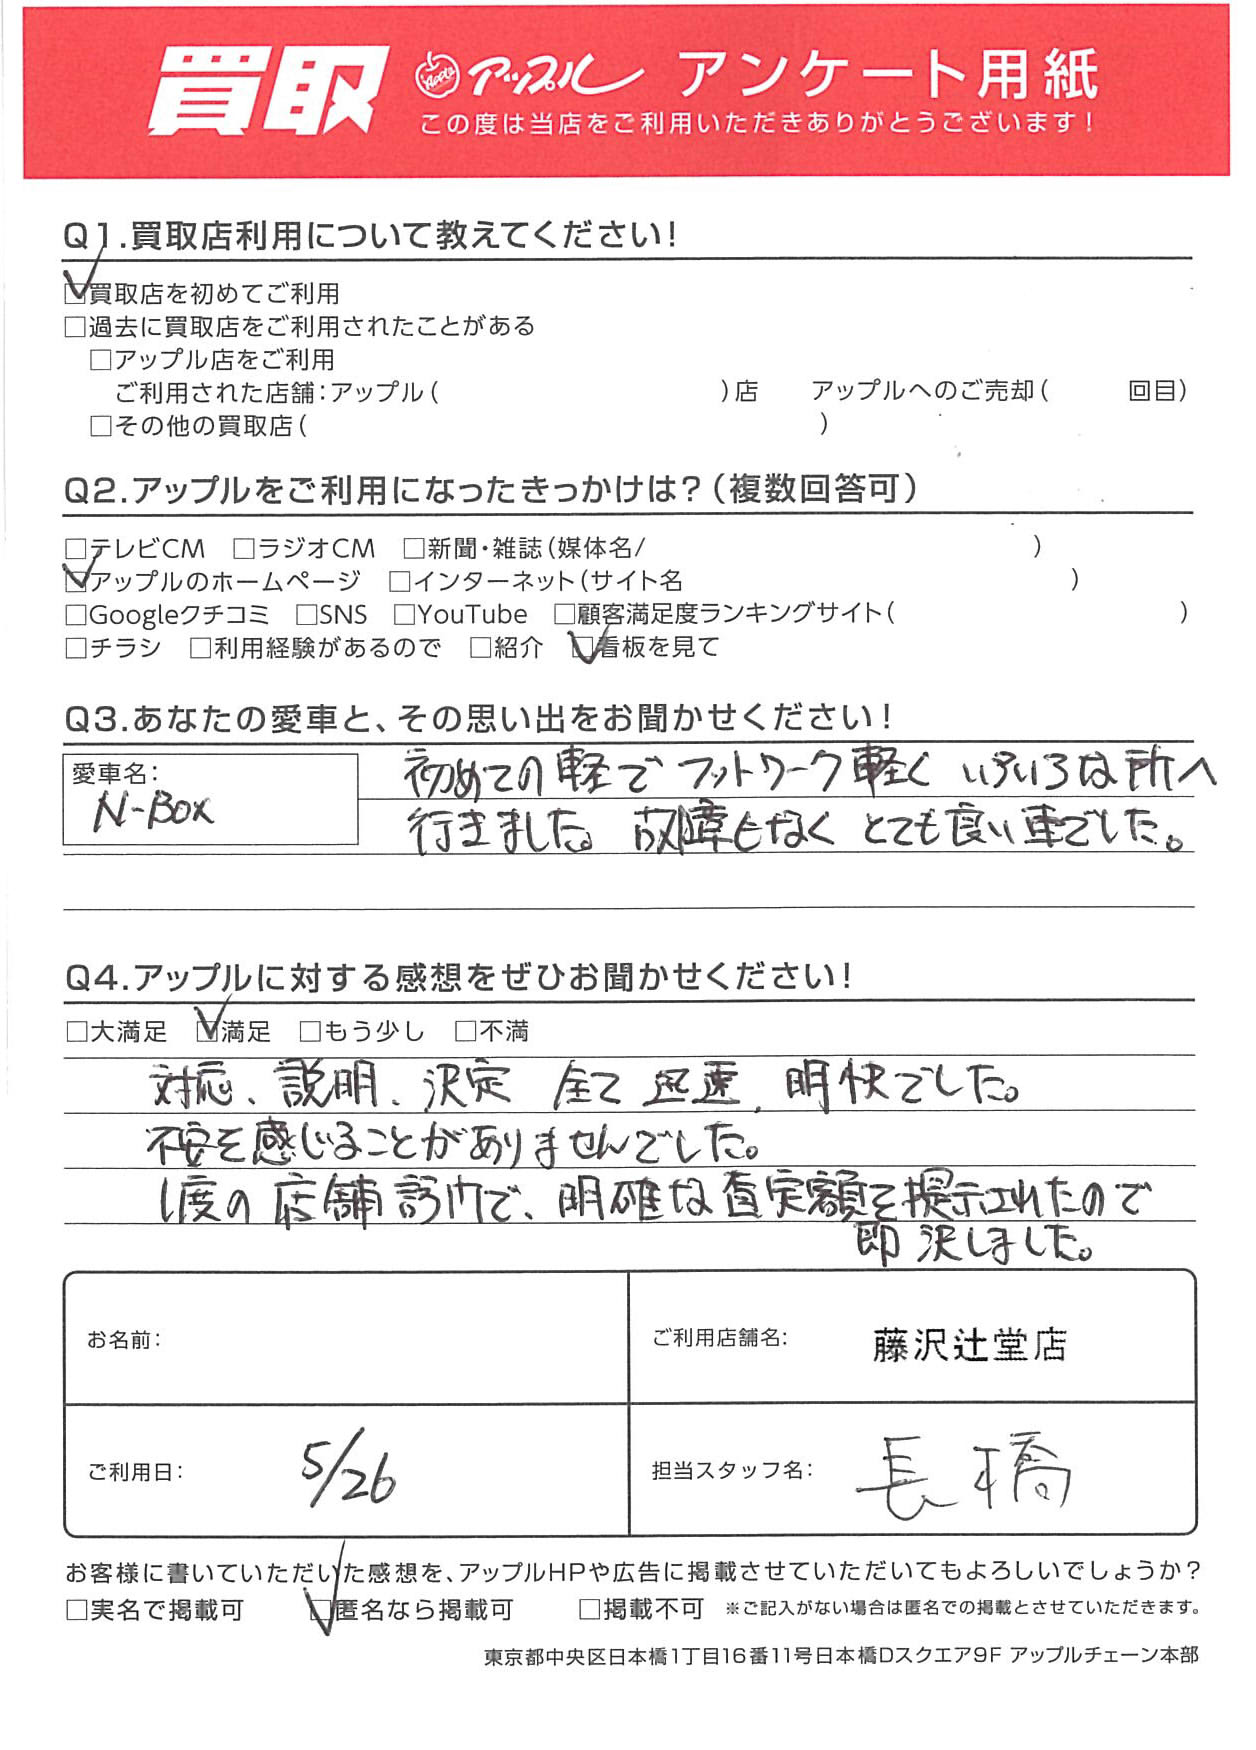 買取 Apple アップル アンケート用紙
この度は当店をご利用いただきありがとうございます!
Q1.買取店利用について教えてください!
☑買取店を初めてご利用
□過去に買取店をご利用されたことがある
□アップル店をご利用
ご利用された店舗:アップル( )店 アップルへのご売却( 回目)
□その他の買取店( )
Q2.アップルをご利用になったきっかけは?(複数回答可)
□テレビCM □ラジオCM □新聞・雑誌(媒体名/ )
☑アップルのホームページ □インターネット(サイト名 )
□Googleクチコミ □SNS □YouTube □顧客満足度ランキングサイト( )
□チラシ □利用経験があるので □紹介 ☑看板を見て
Q3.あなたの愛車と、その思い出をお聞かせください!
愛車名:
N-Box
初めての軽でフットワーク軽く いろいろな所へ
行きました。故障もなく とても良い車でした。
Q4.アップルに対する感想をぜひお聞かせください!
□大満足 ☑満足 □もう少し □不満
対応、説明、決定 全て迅速、明快でした。
不安を感じることがありませんでした。
1度の店舗訪問で、明確な査定額を提示されたので
即決しました。
お名前:
ご利用店舗名: 藤沢辻堂店
ご利用日: 5/26
担当スタッフ名: 長橋
お客様に書いていただいた感想を、アップルHPや広告に掲載させていただいてもよろしいでしょうか?
□実名で掲載可 ☑匿名なら掲載可 □掲載不可 ※ご記入がない場合は匿名での掲載とさせていただきます。
東京都中央区日本橋1丁目16番11号日本橋Dスクエア9F アップルチェーン本部